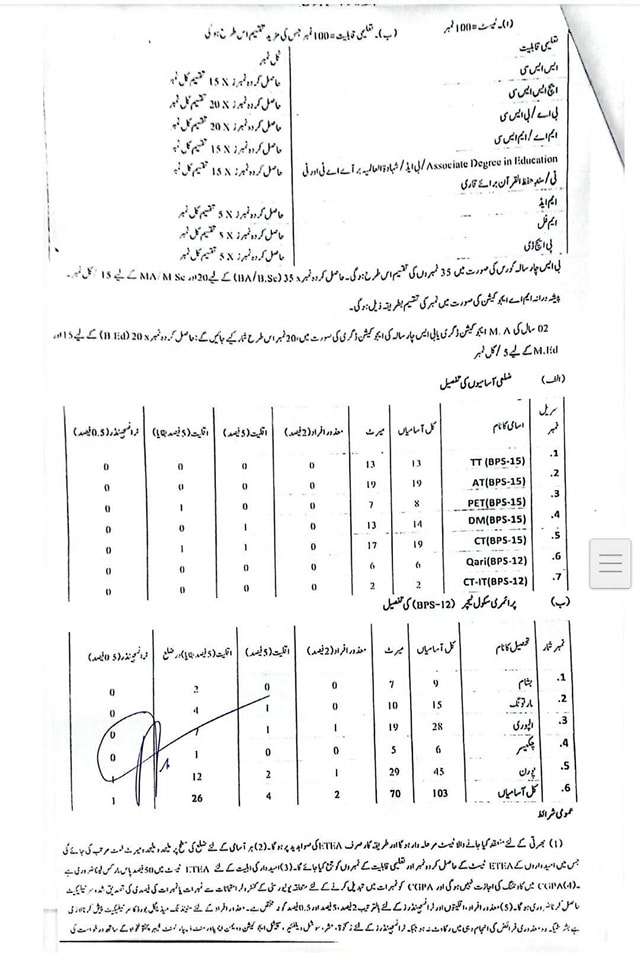 (ا)۔ ٹیسٹ = 100 نمبر (ب)۔ تعلیمی قابلیت = 100 نمبر جس کی مزید تقسیم اس طرح ہو گی
تعلیمی قابلیت کل نمبر
ایس ایس سی حاصل کردہ نمبرز X 15 تقسیم کل نمبر
ایچ ایس ایس سی حاصل کردہ نمبرز X 20 تقسیم کل نمبر
بی اے/بی ایس سی حاصل کردہ نمبرز X 20 تقسیم کل نمبر
ایم اے/ایم ایس سی حاصل کردہ نمبرز X 15 تقسیم کل نمبر
Associate Degree in Education/بی ایڈ/شہادۃ العالمیہ برائے اے ٹی اور ٹی حاصل کردہ نمبرز X 15 تقسیم کل نمبر
ٹی/سند حفظ القرآن برائے قاری
ایم ایڈ حاصل کردہ نمبرز X 5 تقسیم کل نمبر
ایم فل حاصل کردہ نمبرز X 5 تقسیم کل نمبر
پی ایچ ڈی حاصل کردہ نمبرز X 5 تقسیم کل نمبر
بی ایس چار سالہ کورس کی صورت میں 35 نمبروں کی تقسیم اس طرح ہو گی۔ حاصل کردہ نمبر x 35 (BA/B.Sc) کے لیے 20 اور MA/M Sc کے لیے 15 / کل نمبر۔
پیشہ ورانہ ایم اے ایجوکیشن کی صورت میں نمبر کی تقسیم بطریقہ ذیل ہو گی۔
02 سال کی M.A ایجوکیشن ڈگری یا بی ایس چار سالہ کی ایجوکیشن ڈگری کی صورت میں، 20 نمبر اس طرح شمار کیے جائیں گے: حاصل کردہ نمبر x 20 (B Ed) کے لیے 15 اور
M.Ed کے لیے 5 / کل نمبر
(الف) ضلعی آسامیوں کی تفصیل
سریل نمبر اسامی کا نام کل آسامیاں میرٹ معذور افراد (2 فیصد) اقلیت (5 فیصد) اقلیت (5 فیصد بقایا) ٹرانسجینڈر (0.5 فیصد)
1. TT (BPS-15) 13 13 0 0 0 0
2. AT(BPS-15) 19 19 0 0 0 0
3. PET(BPS-15) 8 7 0 0 1 0
4. DM(BPS-15) 14 13 0 1 0 0
5. CT(BPS-15) 19 17 0 1 1 0
6. Qari(BPS-12) 6 6 0 0 0 0
7. CT-IT(BPS-12) 2 2 0 0 0 0
(ب) پرائمری سکول ٹیچر (BPS-12) کی تفصیل
نمبر شمار تحصیل کا نام کل آسامیاں میرٹ معذور افراد (2 فیصد) اقلیت (5 فیصد) اقلیت (5 فیصد بقایا) ضلع ٹرانسجینڈر (0.5 فیصد)
1. بشام 9 7 0 0 2 0
2. مارتونگ 15 10 0 1 4 0
3. الپوری 28 19 1 1 7 0
4. چکیسر 6 5 0 0 1 0
5. پورن 45 29 1 2 12 1
6. کل آسامیاں 103 70 2 4 26 1
عمومی شرائط
(1) بھرتی کے لئے منعقد کیا جانے والا ٹیسٹ مرحلہ وار ہو گا اور طریقہ کار صرف ETEA کی صوابدید پر ہو گا۔ (2) ہر آسامی کے لئے ضلع کی سطح پر علیحدہ علیحدہ میرٹ لسٹ مرتب کی جائے گی
جس میں امیدواروں کے ETEA ٹیسٹ کے حاصل کردہ نمبر اور تعلیمی قابلیت کے نمبروں کو جمع کیا جائے گا۔ (3) امیدوار کی اہلیت کے لئے ETEA ٹیسٹ میں 50 فیصد پاس مارکس لینا ضروری ہے
۔ (4) CGPA میں کاؤنٹنگ کی اجازت نہیں ہو گی اور CGPA کو نمبرات میں تبدیل کرنے کے لئے متعلقہ یونیورسٹی کے کنٹرولر امتحانات سے نمبرات یا نمبرات کی فیصدی کی تصدیق شدہ سرٹیفکیٹ
حاصل کرنا ضروری ہو گا۔ (5) معذور افراد، اقلیتوں اور ٹرانسجینڈرز کے لئے بالترتیب 2 فیصد، 5 فیصد اور 0.5 فیصد کوٹہ مختص ہے۔ معذور افراد کے لئے سٹینڈنگ میڈیکل بورڈ کا سرٹیفکیٹ پیش کرنا لازمی
ہے بشرطیکہ وہ معذوری فرائض کی انجام دہی میں رکاوٹ نہ ہو